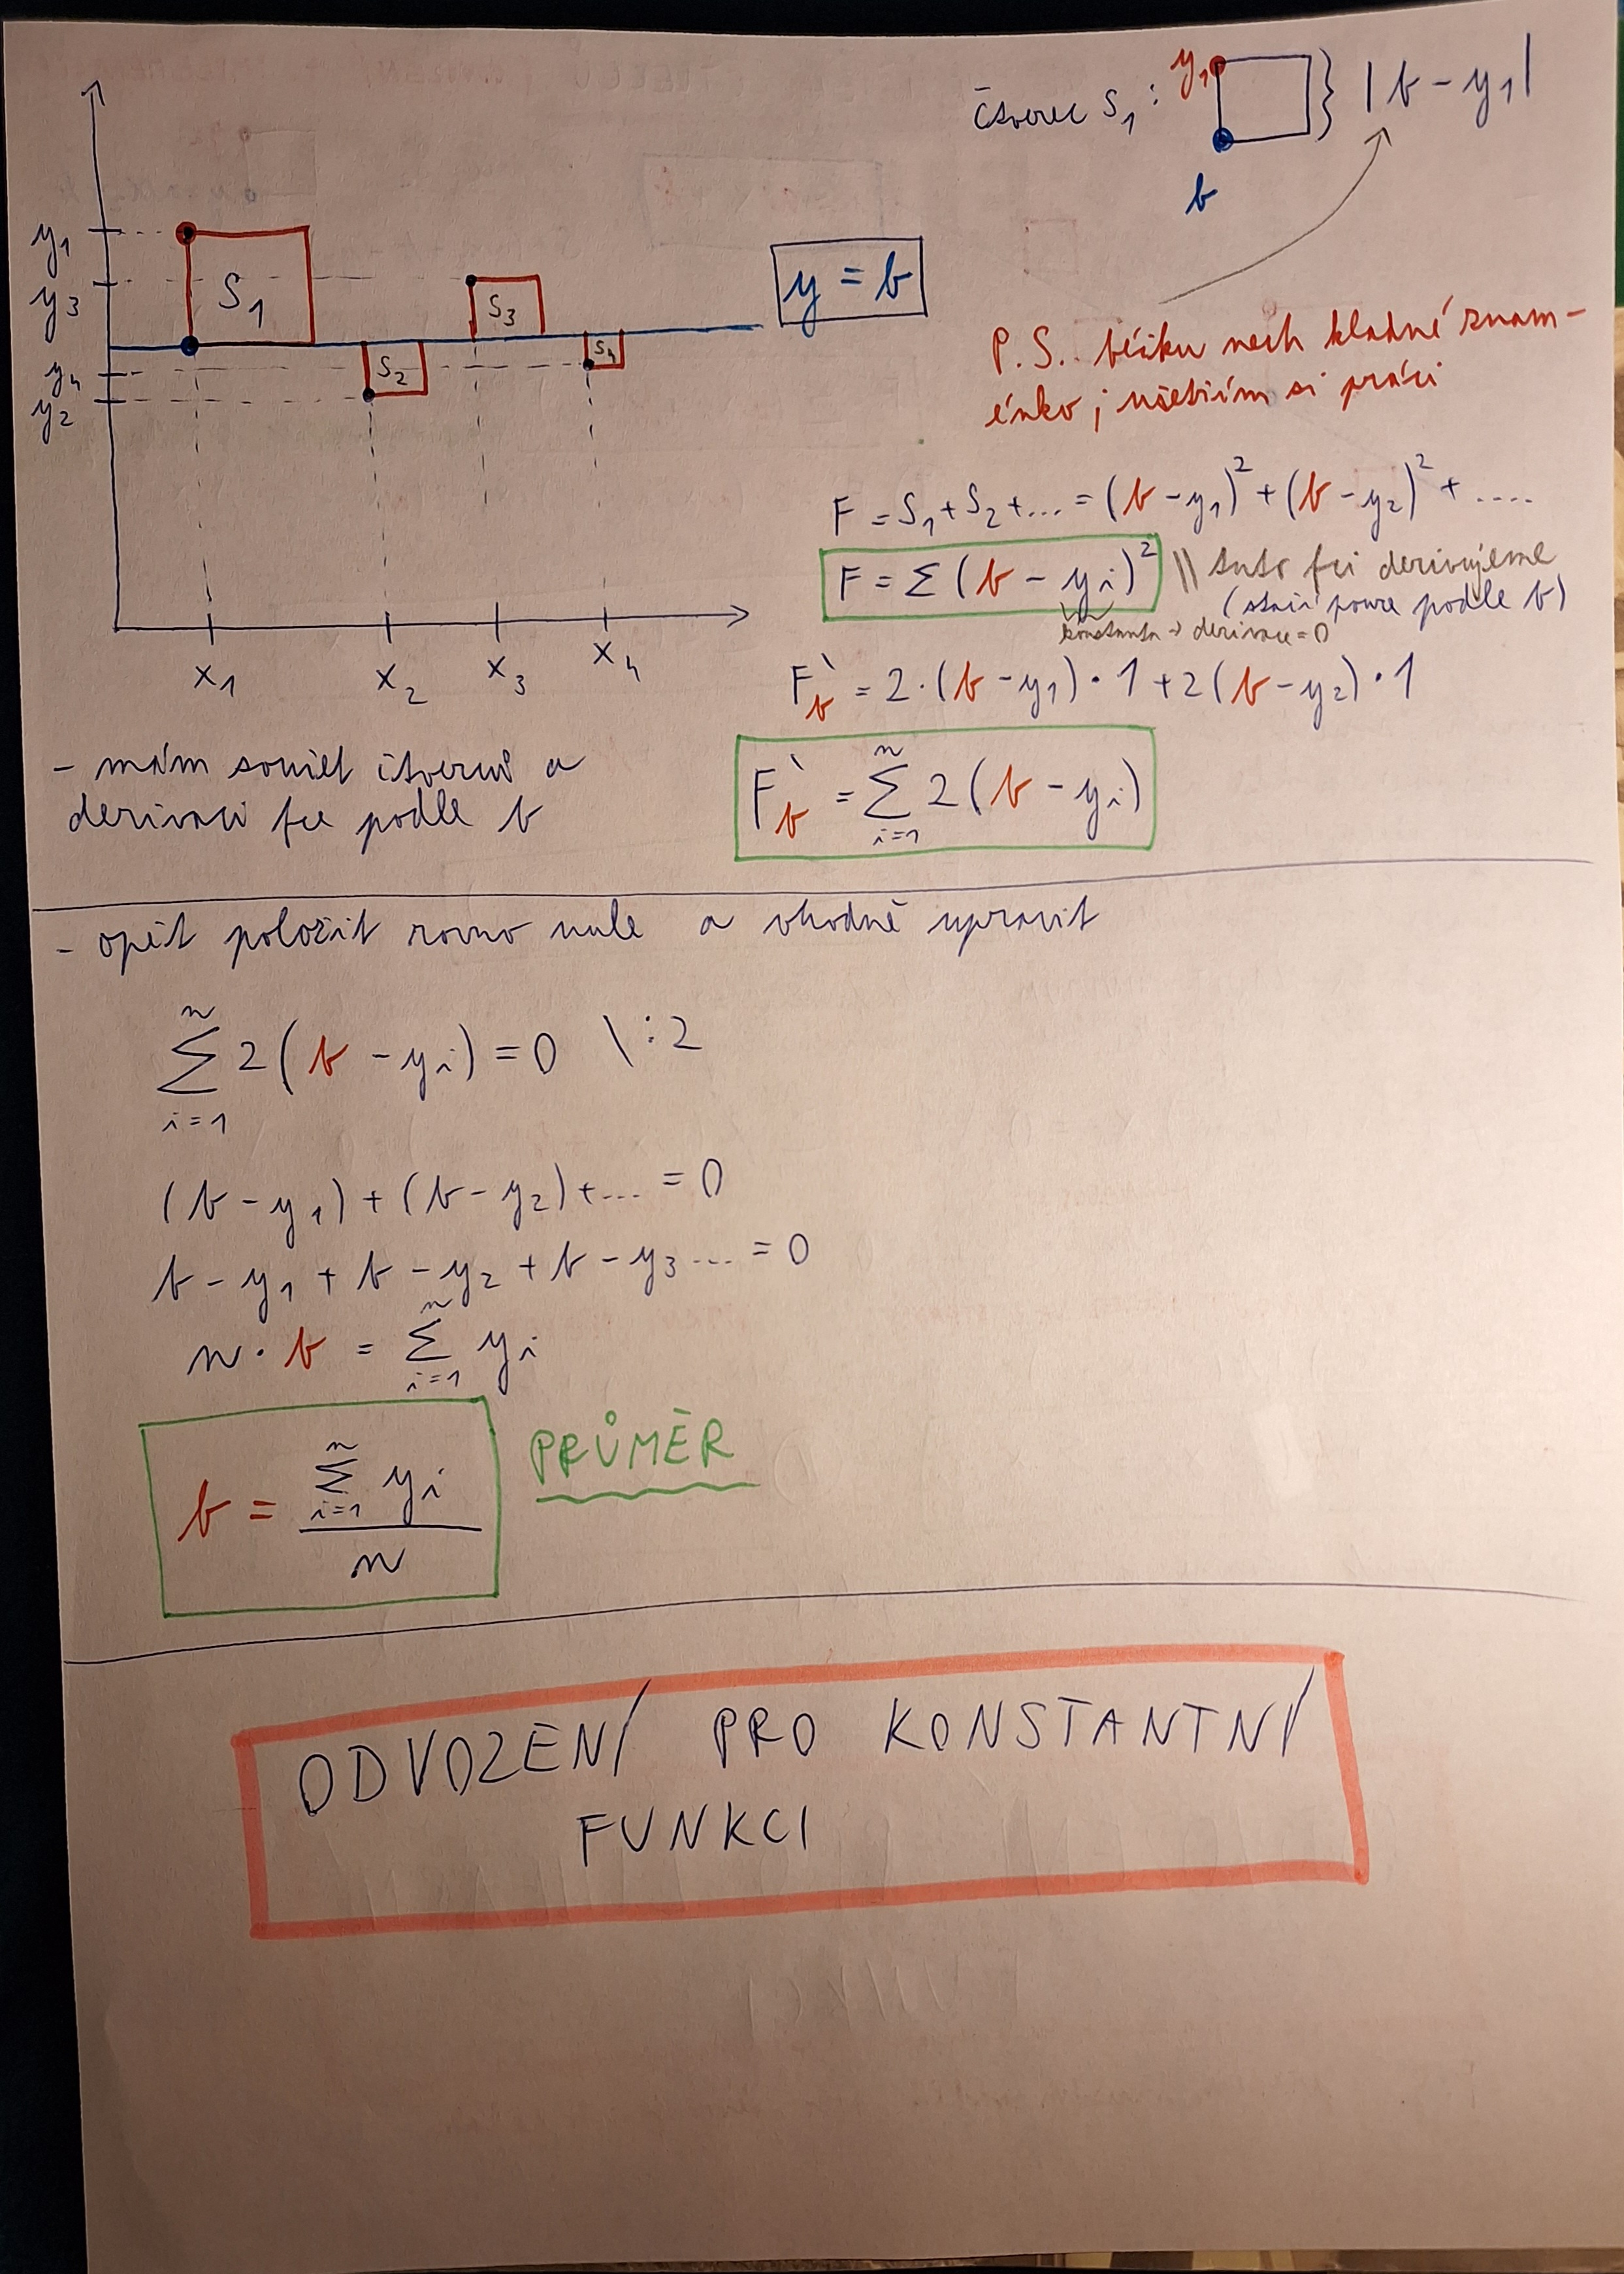 čtverec S₁: y₁ } |b - y₁|
b
y₁
y₃
y₄
y₂
S₁
S₂
S₃
S₄
y = b
x₁ x₂ x₃ x₄
P.S. béčku nech kladné znam-
énko; ušetřím si práci
F = S₁ + S₂ + ... = (b - y₁)² + (b - y₂)² + ....
F = Σ (b - yᵢ)² \\ tuto fci derivujeme
(stačí pouze podle b)
konstanta → derivace = 0
F'b = 2·(b - y₁)·1 + 2(b - y₂)·1
F'b = Σⁿᵢ₌₁ 2(b - yᵢ)
- mám součet čtverců a
derivaci fce podle b
- opět položit rovno nule a vhodně upravit
Σⁿᵢ₌₁ 2(b - yᵢ) = 0 \:2
(b - y₁) + (b - y₂) + ... = 0
b - y₁ + b - y₂ + b - y₃ ... = 0
n · b = Σⁿᵢ₌₁ yᵢ
b = Σⁿᵢ₌₁ yᵢ / n
PRŮMĚR
ODVOZENÍ PRO KONSTANTNÍ
FUNKCI